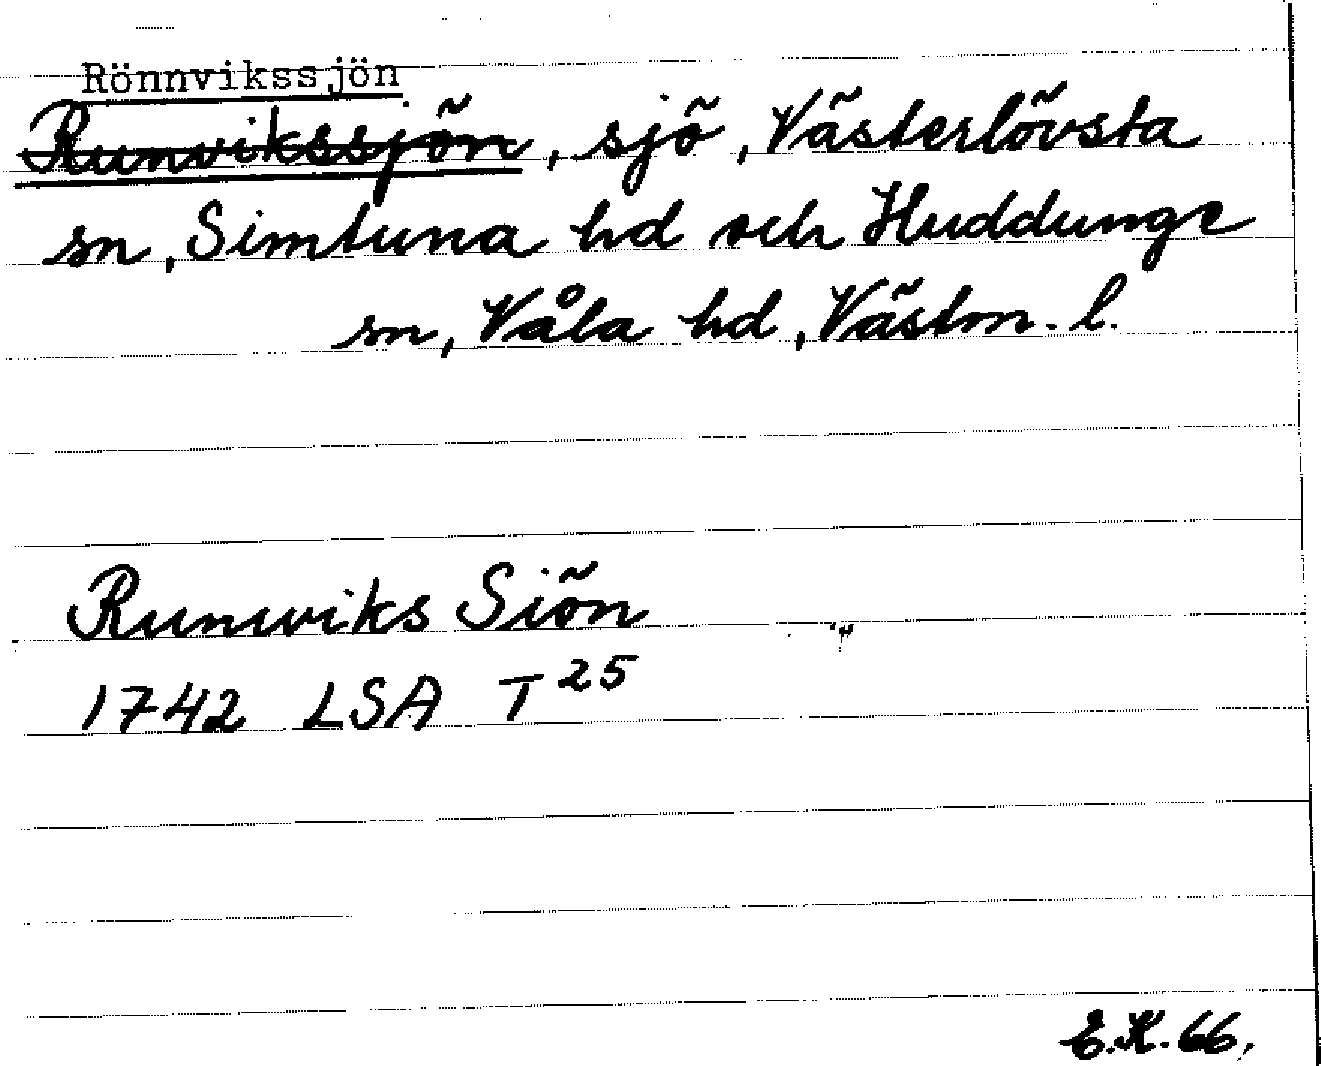 Rönnvikssjön
Runvikssjön, sjö, Västerlövsta
sn, Simtuna hd och Huddunge
sn, Våla hd, Västm. l.
Runwiks Siön
1742 LSA T 25
E.K. 66.